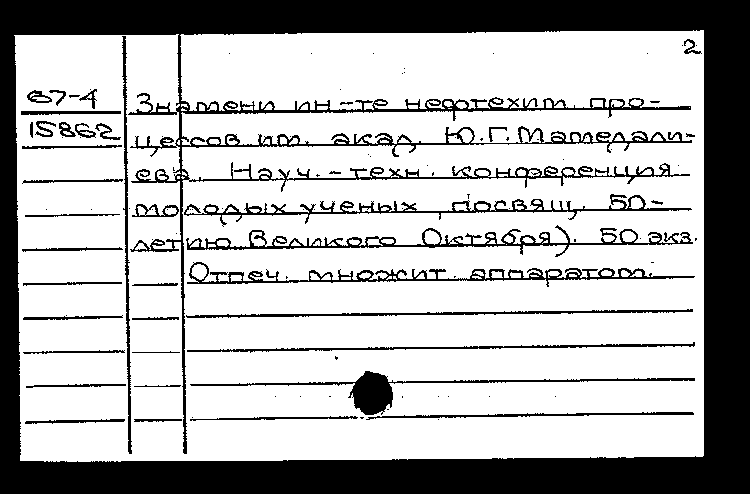 2
67-4 Знамени ин-те нефтехим. про-
15862 цессов им. акад. Ю.Г.Мамедали-
ева. Науч.-техн. конференция
молодых ученых, посвящ. 50-
летию Великого Октября). 50 экз.
Отпеч. множит. аппаратом.